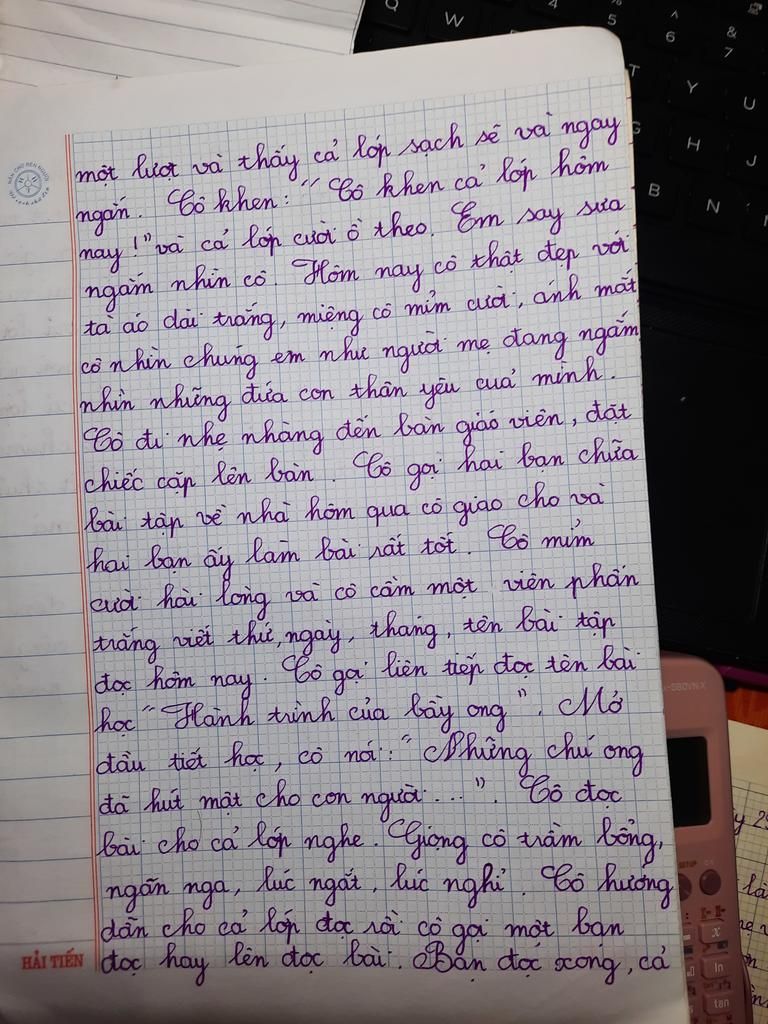 một lượt và thấy cả lớp sạch sẽ và ngay
ngắn. Cô khen: "Cô khen cả lớp hôm
nay!" và cả lớp cười ồ theo. Em say sưa
ngắm nhìn cô. Hôm nay cô thật đẹp với
tà áo dài trắng, miệng cô mỉm cười, ánh mắt
cô nhìn chúng em như người mẹ đang ngắm
nhìn những đứa con thân yêu của mình.
Cô đi nhẹ nhàng đến bàn giáo viên, đặt
chiếc cặp lên bàn. Cô gọi hai bạn chữa
bài tập về nhà hôm qua cô giao cho và
hai bạn ấy làm bài rất tốt. Cô mỉm
cười hài lòng và cô cầm một viên phấn
trắng viết thứ, ngày, tháng, tên bài tập
đọc hôm nay. Cô gọi liên tiếp đọc tên bài
học "Hành trình của bầy ong". Mở
đầu tiết học, cô nói: "Những chú ong
đã hút mật cho con người...". Cô đọc
bài cho cả lớp nghe. Giọng cô trầm bổng,
ngân nga, lúc ngắt, lúc nghỉ. Cô hướng
dẫn cho cả lớp đọc rồi cô gọi một bạn
đọc hay lên đọc bài. Bạn đọc xong, cả
HẢI TIẾN
Q
W
4
5
^
6
&
7
T
Y
U
G
H
J
B
N
580VN X
SETUP
x
ln
tan